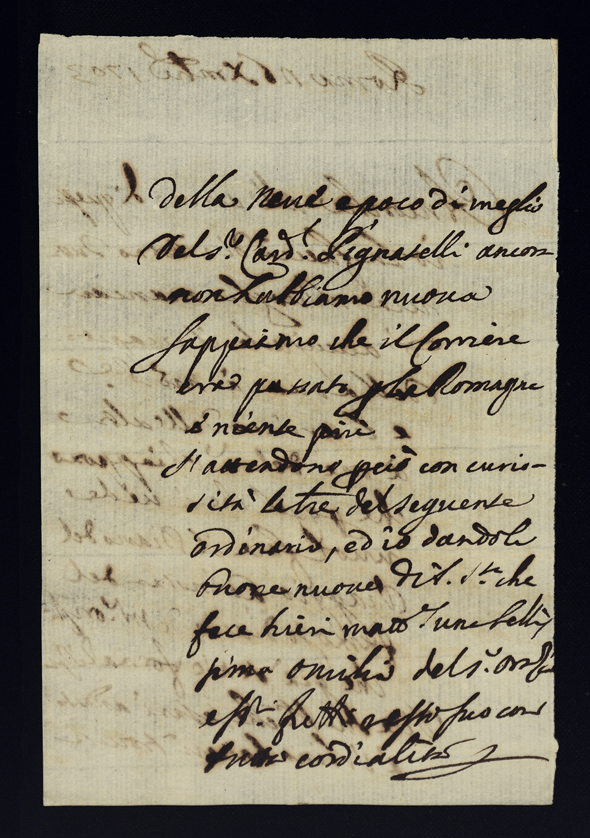 della neve e poco di meglio
Del s.r Card.l Pignatelli ancora
non habbiamo nuova
sappiamo che il Corriere
era passato p la Romagna
e niente più
s'attendono perciò con curio-
sità la tre del seguente
ordinario, ed io dandole
buone nuove di S. S.tà che
fece hieri matt.a una belliss
sima omilia del s.r
resto suo con
tutta cordialità